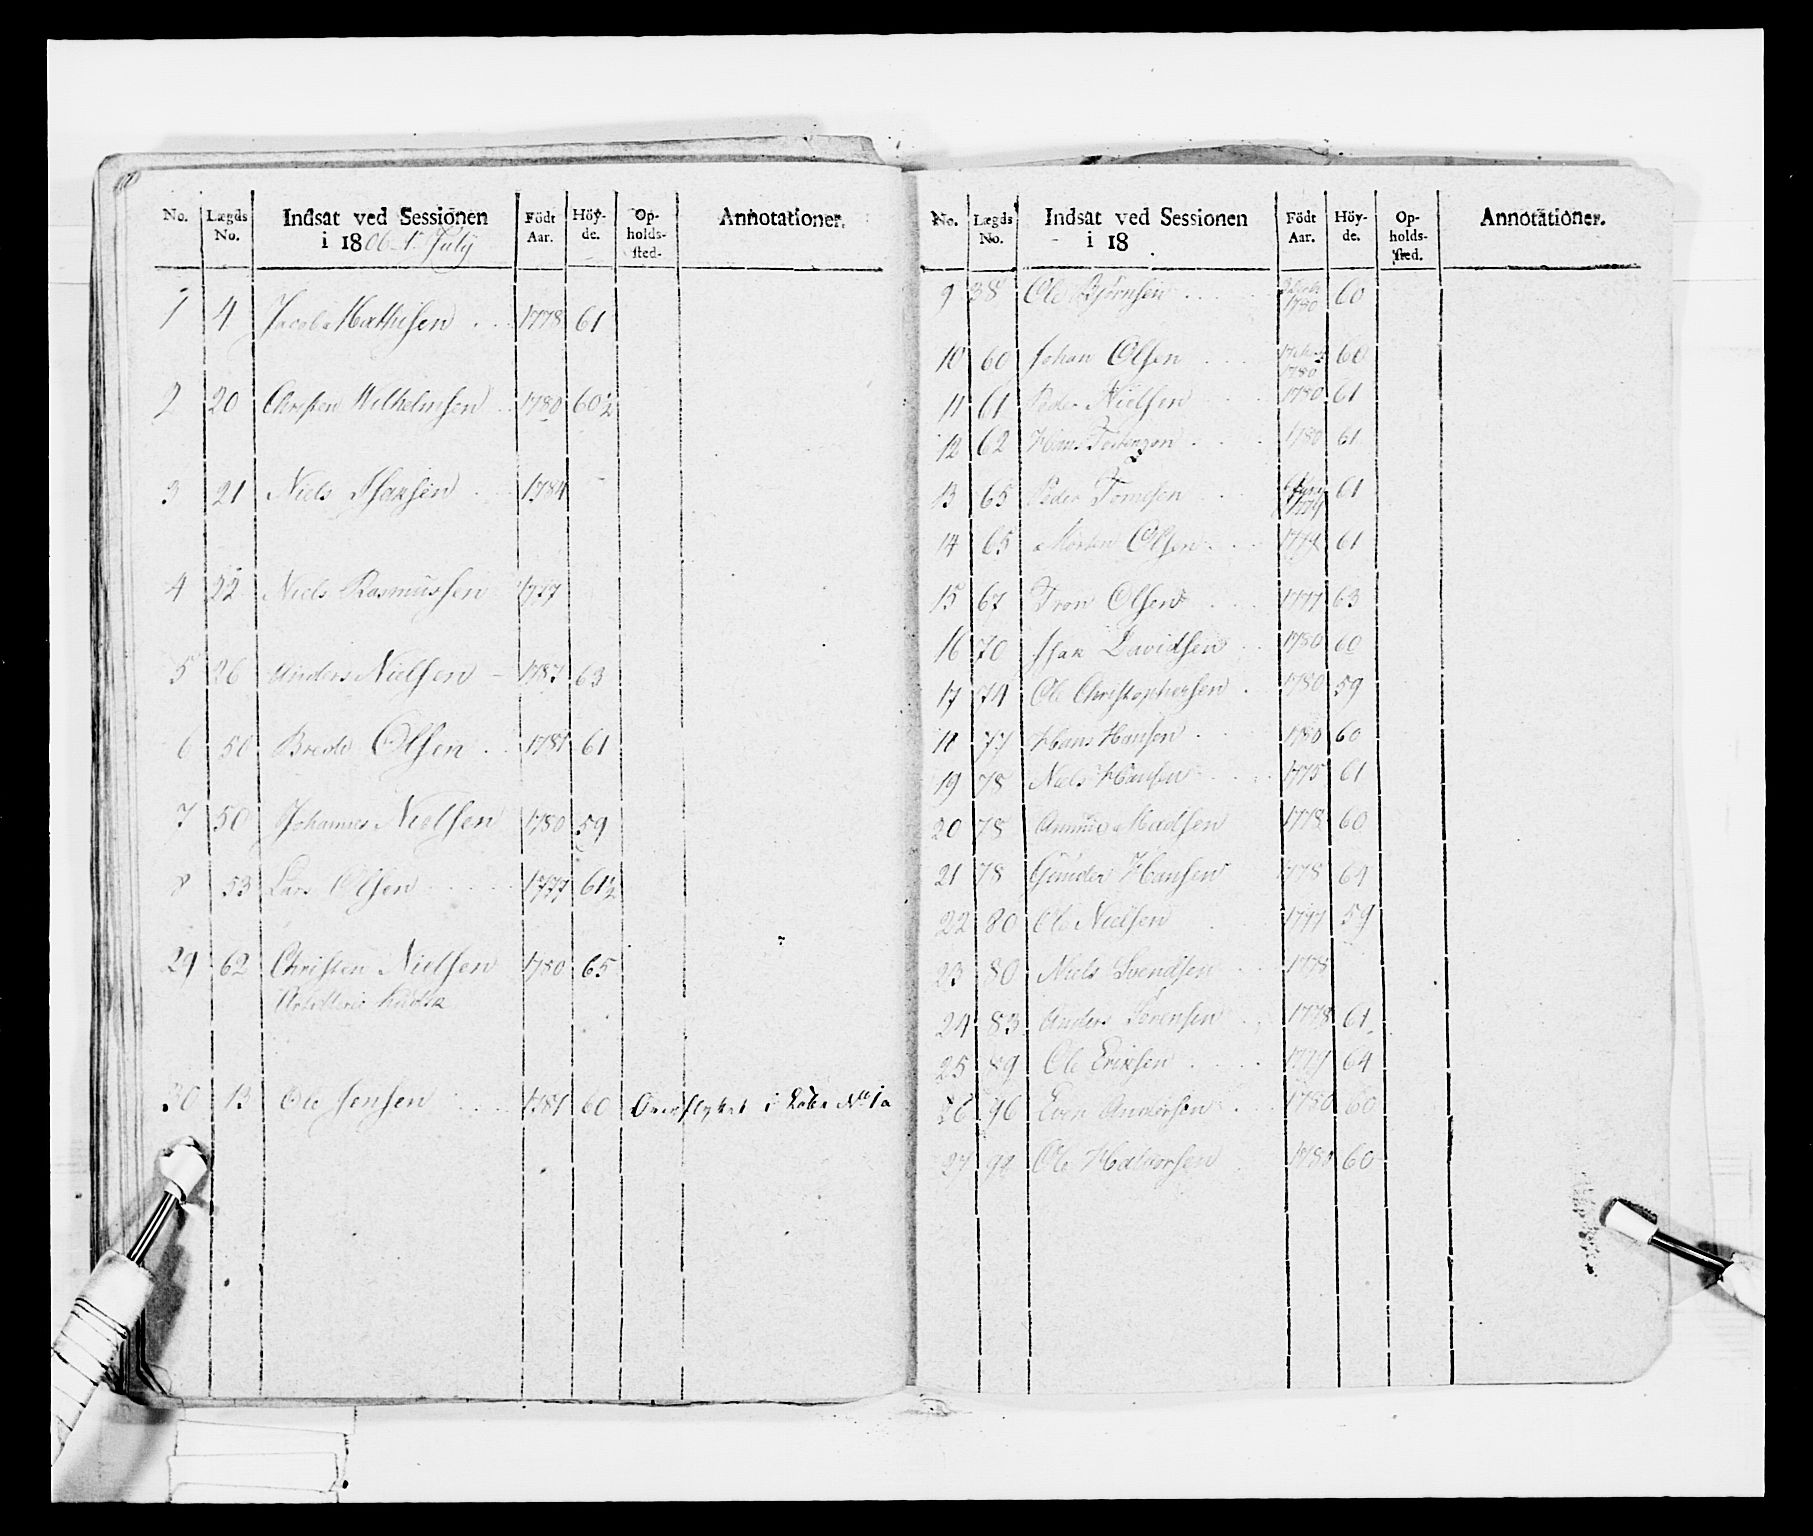 No. Lægds No. Indsat ved Sessionen i 1806 1 July Födt Aar. Höy-de. Op-holds-sted. Annotationer.
1 4 Jacob Mathisen 1778 61
2 20 Christen Wilhelmsen 1780 60½
3 21 Niels Isaksen 1784
4 22 Niels Rasmussen 1777
5 26 Anders Nielsen 1787 63
6 50 Brede Olsen 1781 61
7 50 Johannes Nielsen 1780 59
8 53 Lars Olsen 1777 61½
29 62 Christen Nielsen 1780 65
Artillerie
30 13 Ole Jensen 1781 60 Overflyttet i No 1a
No. Lægds No. Indsat ved Sessionen i 18 Födt Aar. Höy-de. Op-holds-sted. Annotationer.
9 38 Ole Bjørnsen 1780 60
10 60 Johan Olsen 1780 60
11 61 Peder Nielsen 1780 61
12 62 Hans 1780 61
13 65 Peder Tomesen 1779 61
14 65 Morten Olsen 61
15 67 Tron Olsen 1777 63
16 70 Isak Davidsen 1780 60
17 74 Ole Christophersen 1780 59
18 77 Hans Hansen 1780 60
19 78 Niels Hansen 1775 61
20 78 Madsen 1778 60
21 78 Gunder Hansen 1778 64
22 80 Ole Nielsen 1777 59
23 80 Niels Svendsen 1778
24 83 Anders Sørensen 1778 61
25 89 Ole Eriksen 64
26 96 Even Andersen 1780 60
27 Ole Halvorsen 1780 60